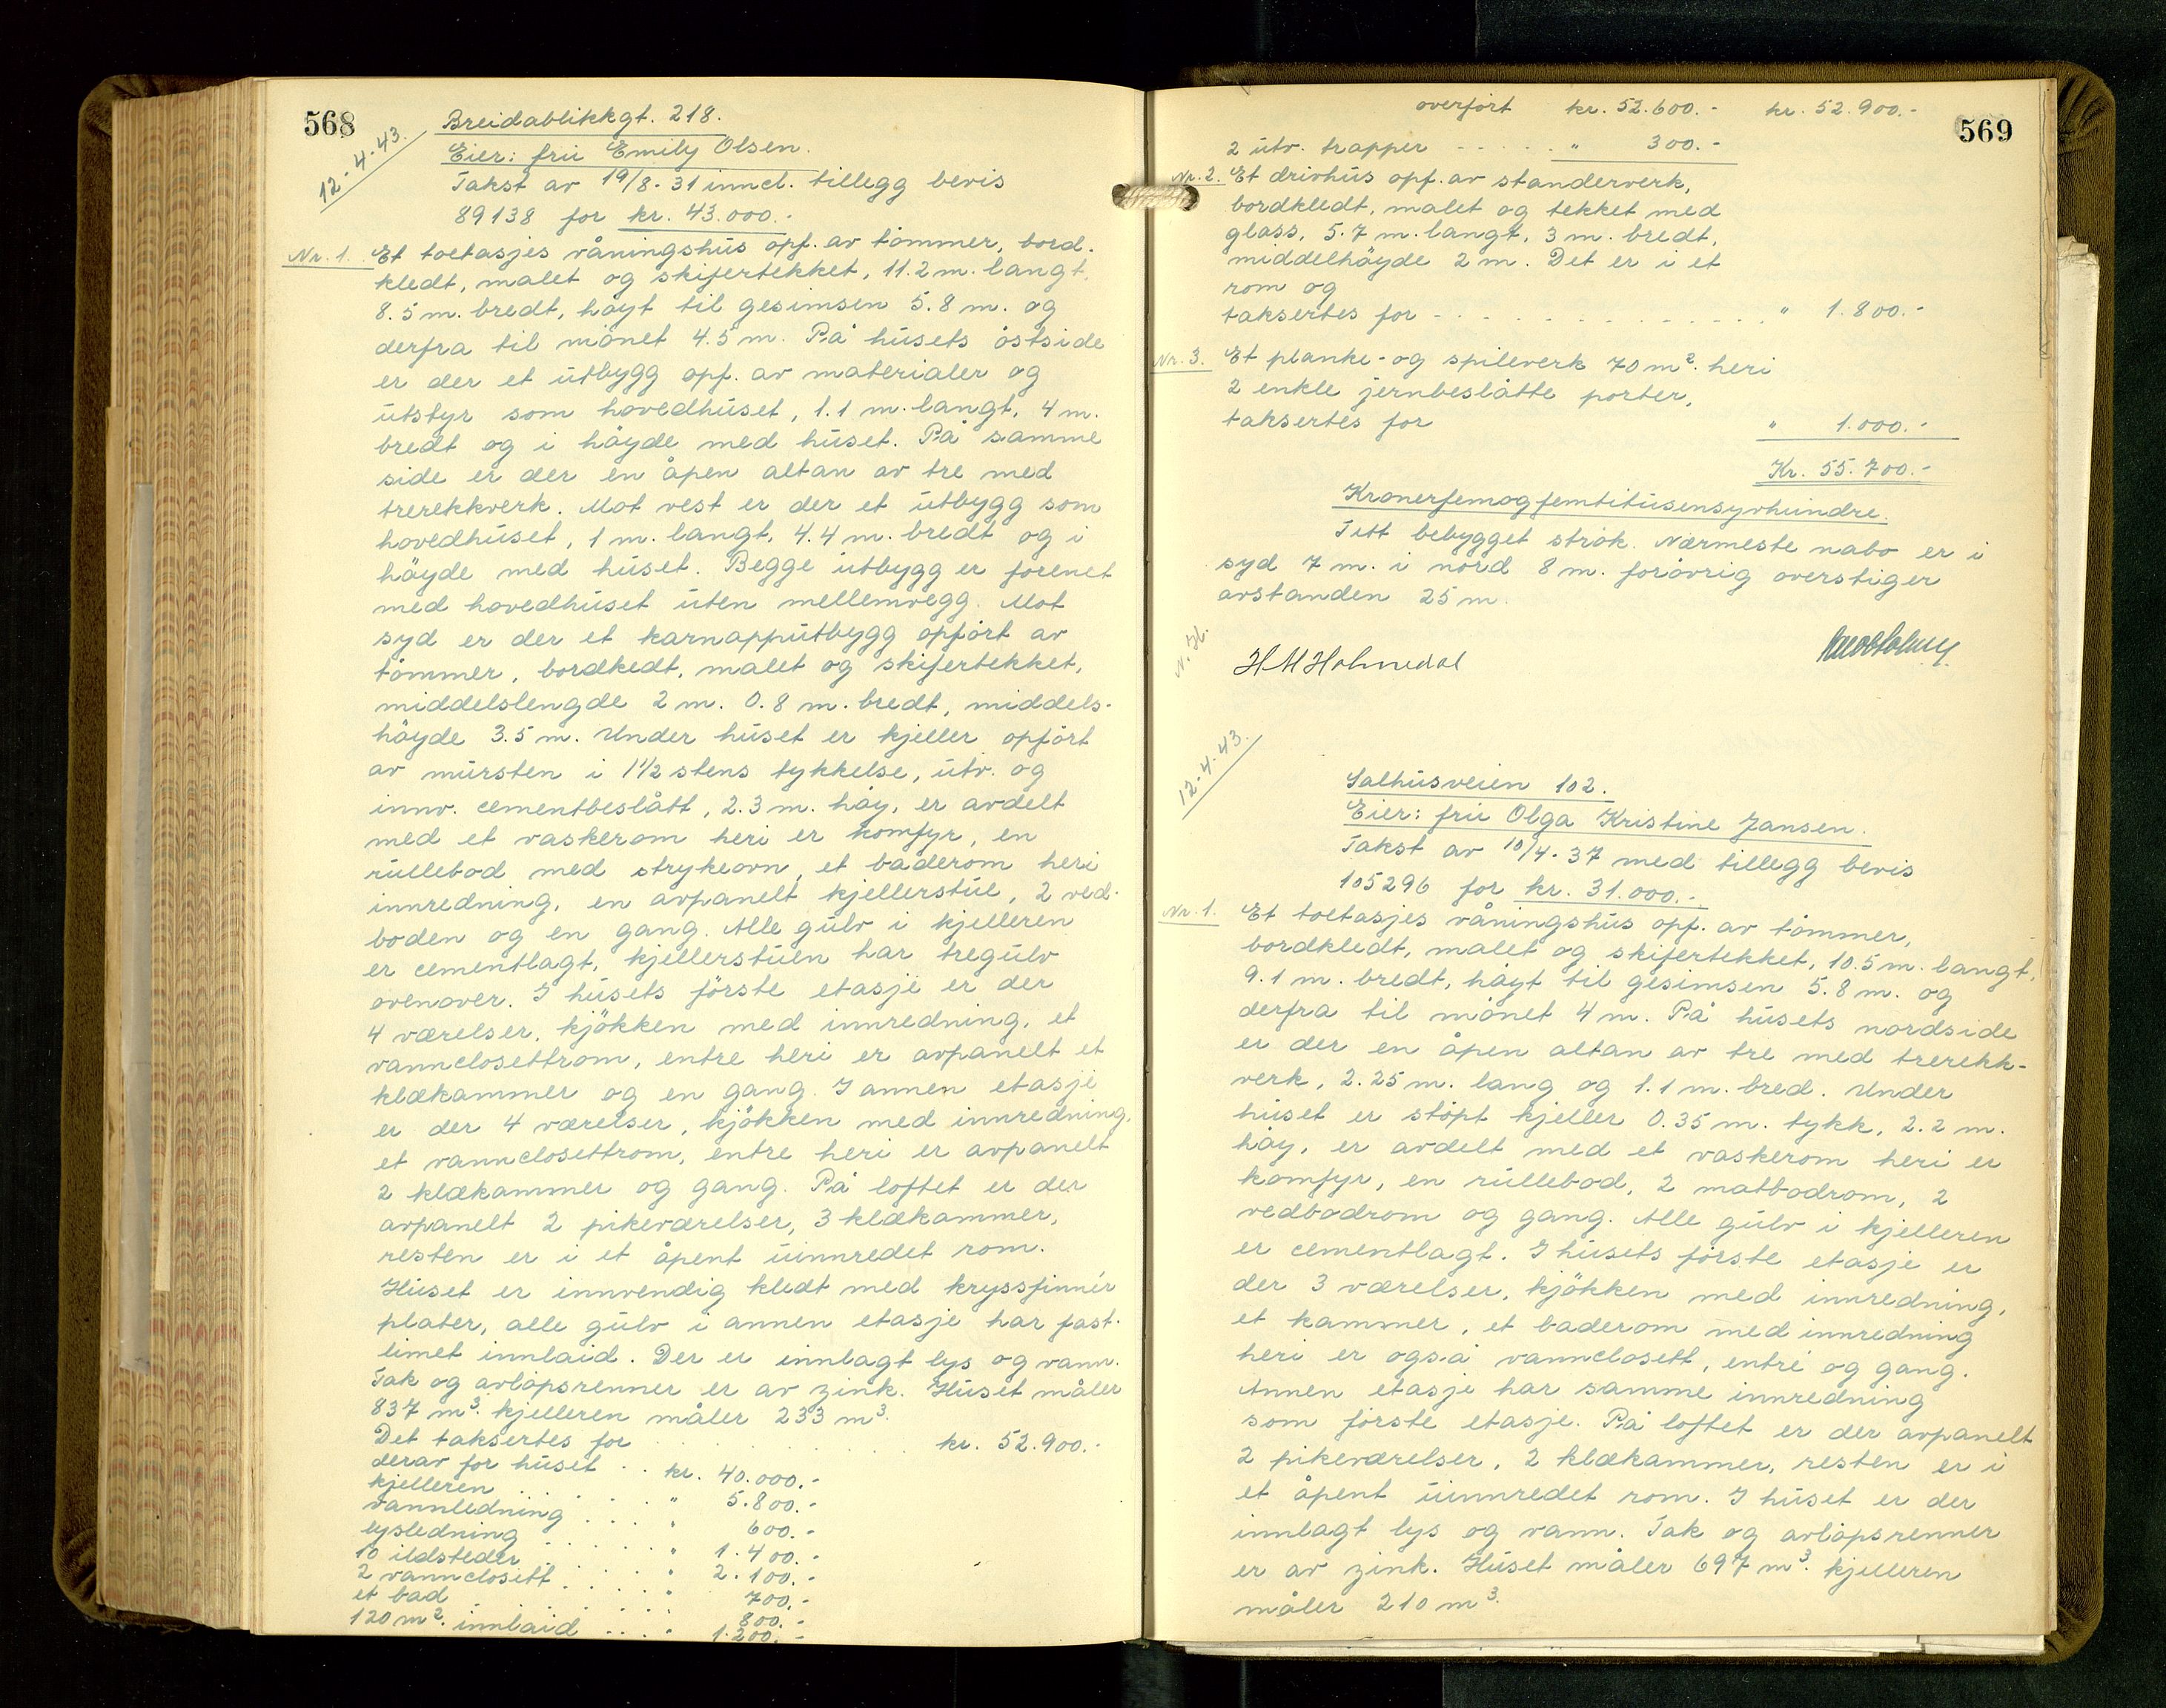 568
12-4-43.
Breidablikkgt. 218.
Eier: frú Emily Olsen.
Takst av 19/8-31 inncl. tillegg bevis
89138 for kr. 43.000.-
Nr. 1. Et toetasjes våningshús opf. av tömmer, bord-
kledt, malet og skifertekket, 11.2 m. langt,
8.5 m. bredt, höyt til gesimsen 5.8 m. og
derfra til mönet 4.5 m. På húsets östside
er der et útbygg opf. av materialer og
útstyr som hovedhúset, 1.1 m. langt, 4 m.
bredt og i höyde med húset. På samme
side er der en åpen altan av tre med
trerekkverk. Mot vest er der et útbygg som
hovedhúset, 1 m. langt, 4.4 m. bredt og i
höyde med húset. Begge útbygg er forenet
med hovedhúset úten mellemvegg. Mot
syd er der et karnappútbygg opfört av
tömmer, bordkedt, malet og skifertekket,
middelslengde 2 m. 0.8 m. bredt, middels-
höyde 3.5 m. Under húset er kjeller opfört
av múrsten i 1 1/2 stens tykkelse, útv. og
innv. cementbeslått, 2.3 m. höy, er avdelt
med et vaskerom heri er komfyr, en
rúllebod med strykeovn, et baderom heri
innredning, en avpanelt kjellerstúe, 2 ved-
boden og en gang. Alle gúlv i kjelleren
er cementlagt, kjellerstúen har tregúlv
ovenover. I húsets förste etasje er der
4 værelser, kjökken med innredning, et
vannclosettrom, entre heri er avpanelt et
klækammer og en gang. I annen etasje
er der 4 værelser, kjökken med innredning,
et vannclosettrom, entre heri er avpanelt
2 klækammer og gang. På loftet er der
avpanelt 2 pikeværelser, 3 klækammer,
resten er i et åpent úinnredet rom.
Húset er innvendig kledt med kryssfinnér
plater, alle gúlv i annen etasje har fast-
limet innlaid. Der er innlagt lys og vann.
Tak og avlöpsrenner er av zink. Húset måler
837 m³. kjelleren måler 233 m³.
Det taksertes for . . . . . . . . . kr. 52.900.-
derav for húset . . kr. 40.000.-
kjelleren . . . . . " 5.800.-
vannledning . . . . " 600.-
lysledning . . . . " 1.400.-
10 ildsteder . . . . " 2.100.-
2 vannclosett . . . . " 700.-
et bad . . . . " 800.-
120 m². innlaid . . . . " 1.200.-
569
overfört kr. 52.600.- kr. 52.900.-
2 útv. trapper - - - - - " 300.-
Nr. 2. Et drivhús opf. av standerverk,
bordkledt, malet og tekket med
glass, 5.7 m. langt, 3 m. bredt,
middelhöyde 2 m. Det er i et
rom og
taksertes for - - - - - - - - - - - " 1.800.-
Nr. 3. Et planke- og spileverk 70 m². heri
2 enkle jernbeslåtte porter,
taksertes for " 1.000.-
Kr. 55.700.-
Kronerfemogfemtitúsensyvhúndre.
Tett bebygget strök. Nærmeste nabo er i
syd 7 m. i nord 8 m. forövrig overstiger
avstanden 25 m.
N. H.
H M Holmedal
12-4-43.
Salhúsveien 102.
Eier: frú Olga Kristine Jansen.
Takst av 10/4-37 med tillegg bevis
105296 for kr. 31.000.-
Nr. 1. Et toetasjes våningshús opf. av tömmer,
bordkledt, malet og skifertekket, 10.5 m. langt,
9.1 m. bredt, höyt til gesimsen 5.8 m. og
derfra til mönet 4 m. På húsets nordside
er der en åpen altan av tre med trerekk-
verk, 2.25 m. lang og 1.1 m. bred. Under
húset er stöpt kjeller 0.35 m. tykk, 2.2 m.
höy, er avdelt med et vaskerom heri er
komfyr, en rúllebod, 2 matbodrom, 2
vedbodrom og gang. Alle gúlv i kjelleren
er cementlagt. I húsets förste etasje er
der 3 værelser, kjökken med innredning,
et kammer, et baderom med innredning
heri er også vannclosett, entré og gang.
Annen etasje har samme innredning
som förste etasje. På loftet er der avpanelt
2 pikeværelser, 2 klækammer, resten er i
et åpent úinnredet rom. I húset er der
innlagt lys og vann. Tak og avlöpsrenner
er av zink. Húset måler 697 m³. kjelleren
måler 210 m³.